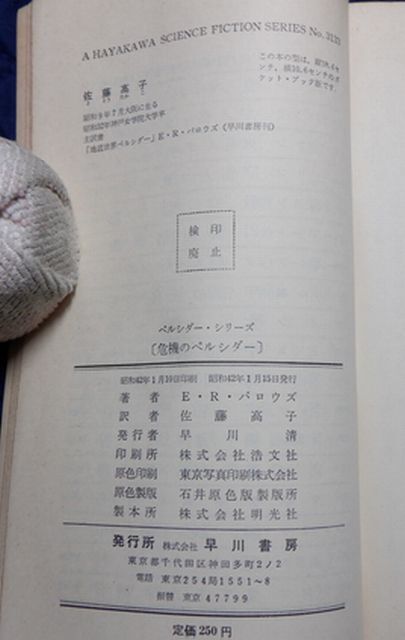 A HAYAKAWA SCIENCE FICTION SERIES No. 3133
この本の型は、縦18.4セ
ンチ、横10.6センチのポ
ケット・ブック版です。
佐藤高子
昭和9年7月大阪に生る
昭和32年神戸女学院大学卒
主訳書
「地底世界ペルシダー」E・R・バロウズ(早川書房刊)
検印
廃止
ペルシダー・シリーズ
〔危機のペルシダー〕
昭和42年1月10日印刷 昭和42年1月15日発行
著者 E・R・バロウズ
訳者 佐藤高子
発行者 早川清
印刷所 株式会社浩文社
原色印刷 東京写真印刷株式会社
原色製版 石井原色版製版所
製本所 株式会社明光社
発行所 株式会社 早川書房
東京都千代田区神田多町2ノ2
電話 東京254局1551〜8
振替 東京47799
定価250円